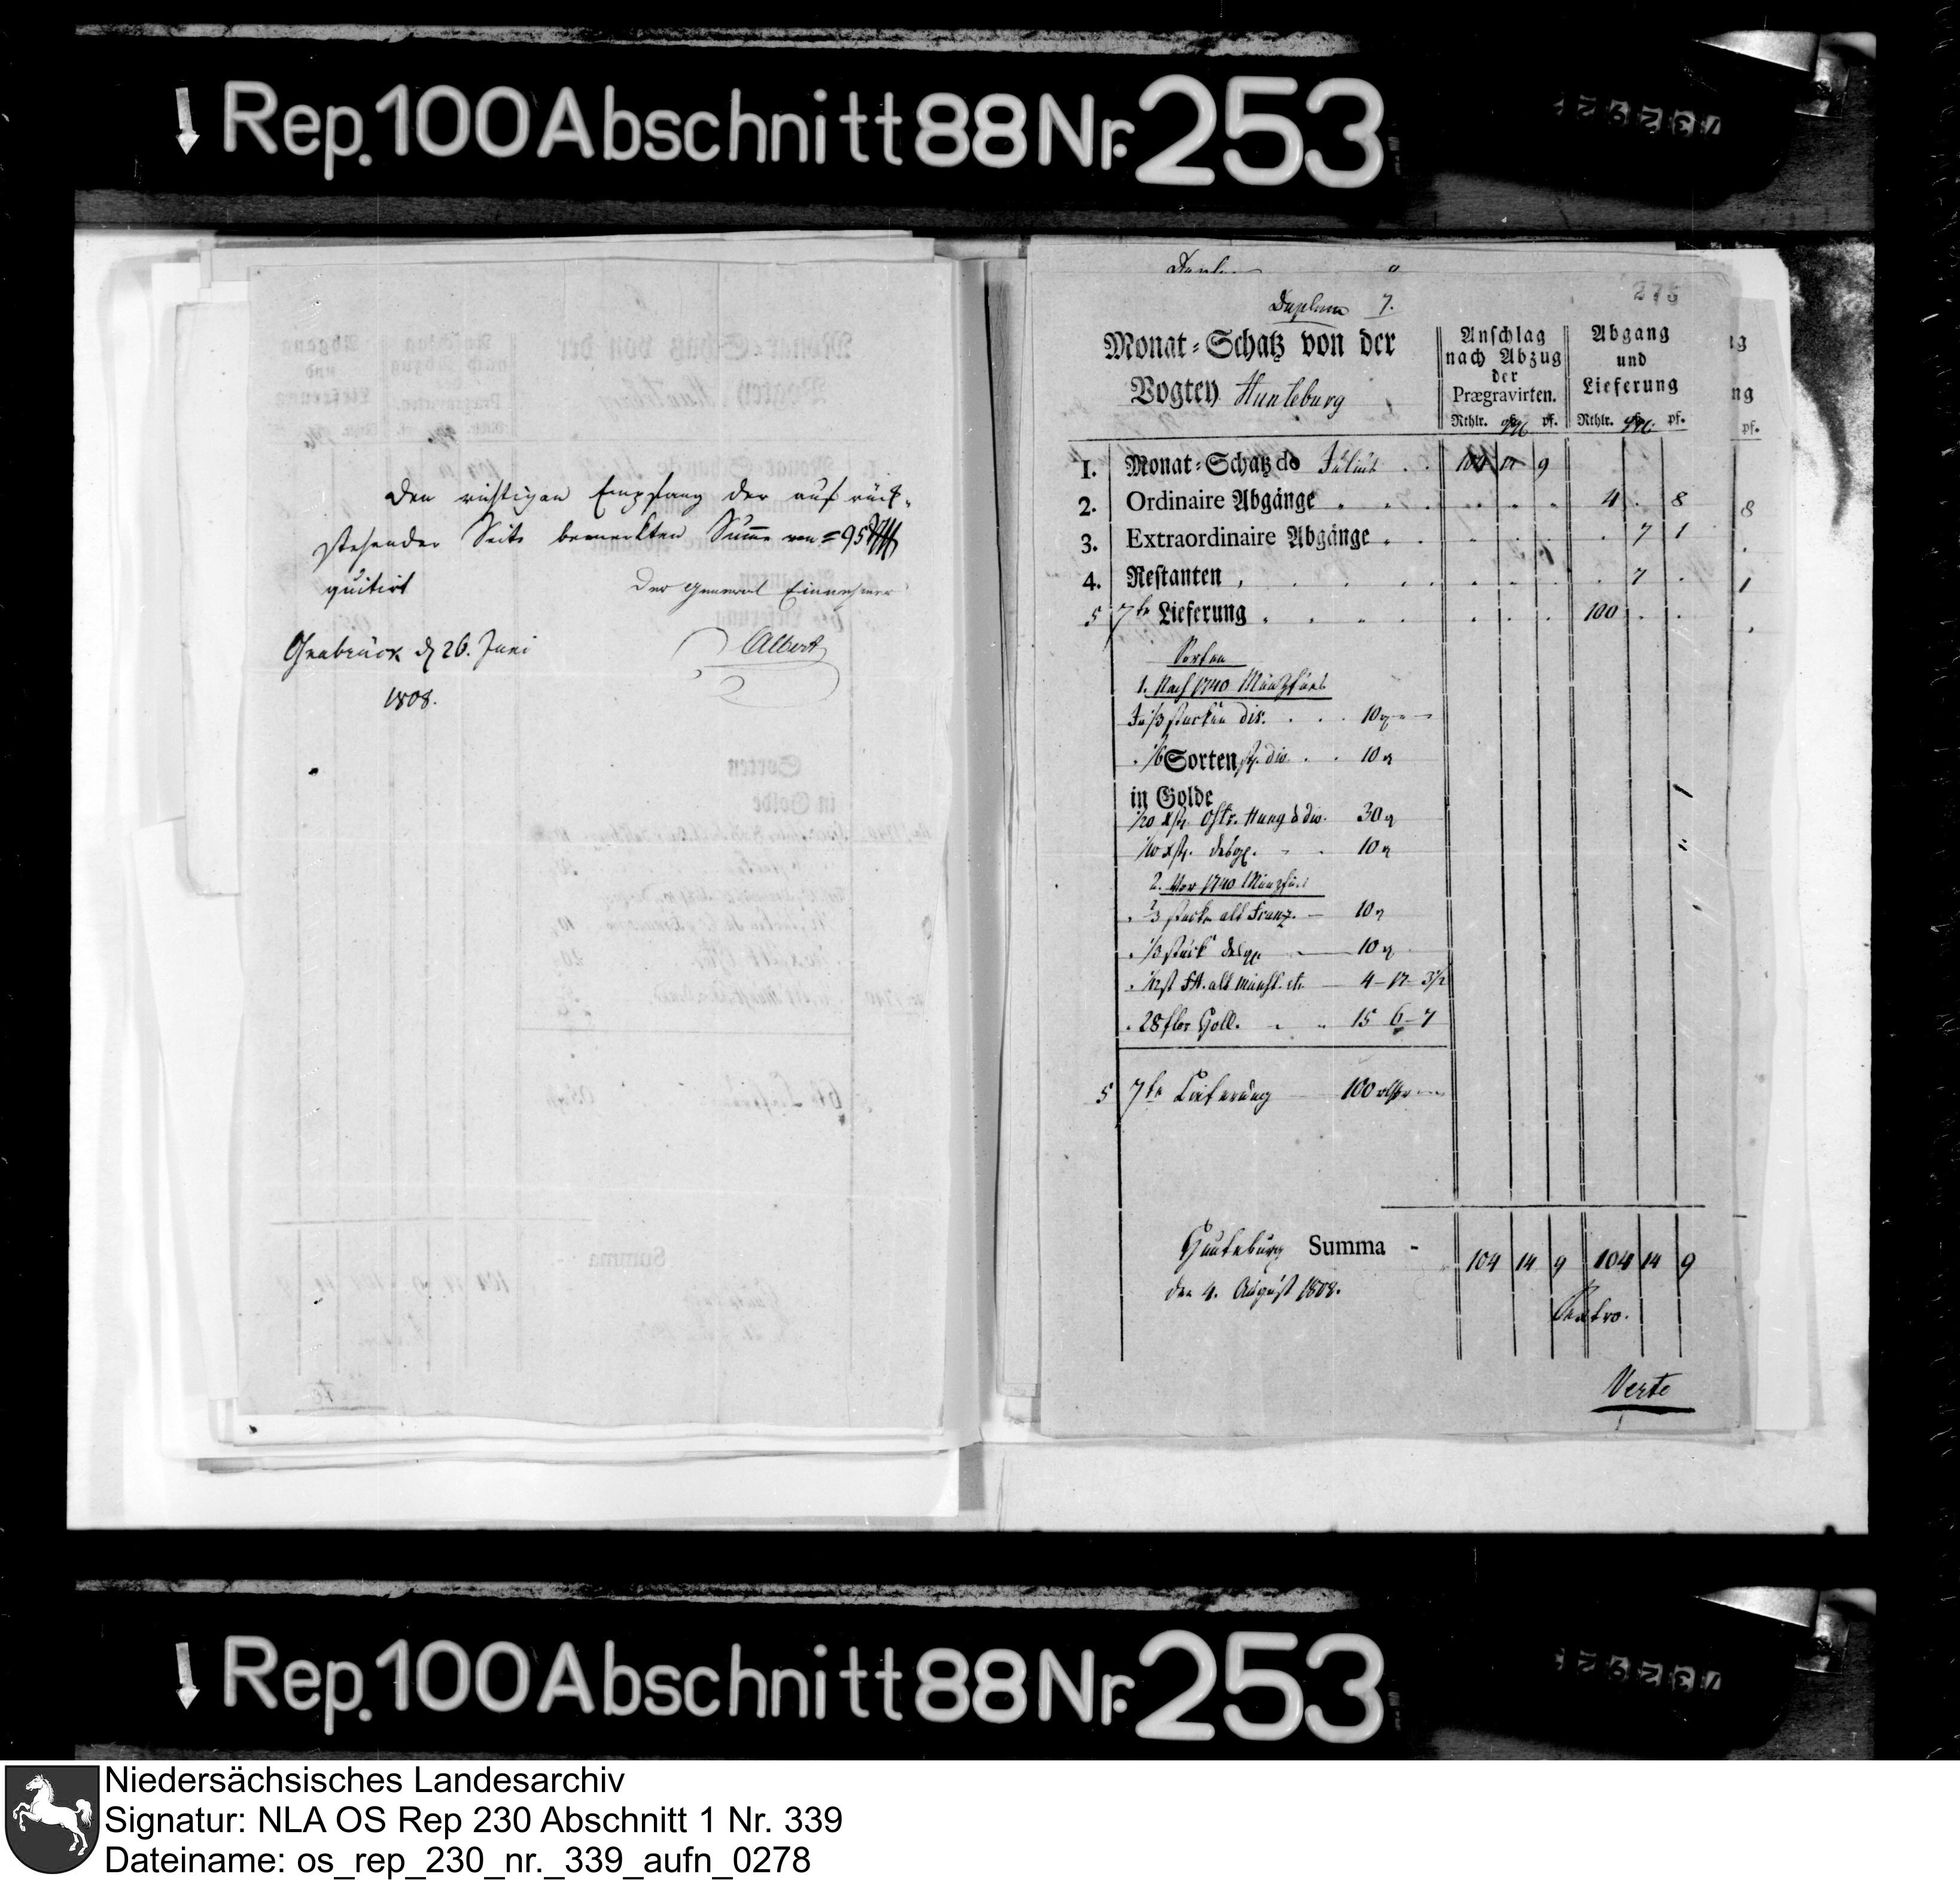 Rep. 100 Abschnitt 88 Nr. 253
Den richtigen Empfang der auf rück-
stehender Seite bemerkten Summe von = 95
quitirt
Der General Einnehmer
Osnabrück d 26. Juni
Albert
1808.
275
7.
Monat-Schatz von der
Vogtey Hunteburg
Anschlag
nach Abzug
der
Prægravirten.
Abgang
und
Lieferung
Rthlr. pf. Rthlr. pf.
1. Monat-Schatz de Julius 104 14 9
2. Ordinaire Abgänge 4 . 8
3. Extraordinaire Abgänge . 7 1
4. Restanten . 7 .
5 7te Lieferung 100 . .
Sorten
1. Nach 1740 Münzfuß
In 1/3 stücken div. 10
1/6 Sorten div. 10
in Golde
1/20 div. 30
1/10 10
2. Vor 1740 Münzfuß
2/3 stück alt Franz. 10
1/3 stück 10
1/12 4 - 17 - 3 1/2
28 15 6 - 7
5 7te Lieferung 100
Hunteburg Summa - 104 14 9 104 14 9
den 4. August 1808.
Verte
Rep. 100 Abschnitt 88 Nr. 253
Niedersächsisches Landesarchiv
Signatur: NLA OS Rep 230 Abschnitt 1 Nr. 339
Dateiname: os_rep_230_nr._339_aufn_0278